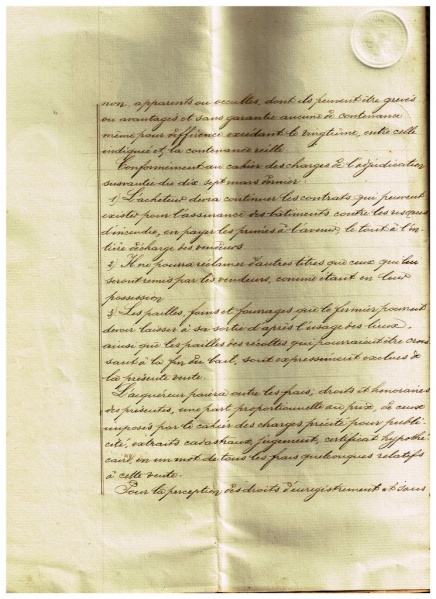 non, apparents ou occultes, dont ils peuvent être grevés
ou avantagés et sans garantie aucune de contenance
même pour différence excédant le vingtième, entre celle
indiquée et la contenance réelle.
Conformément au cahier des charges de l'adjudication
susvantée du dix sept mars dernier:
1) L'acheteur devra continuer les contrats qui peuvent
exister pour l'assurance des bâtiments contre les risques
d'incendie, en payer les primes à l'avenir, le tout à l'en-
tière décharge des vendeurs.
2) Il ne pourra réclamer d'autres titres que ceux qui lui
seront remis par les vendeurs, comme étant en leur
possession.
3) Les pailles, foins et fourrages que le fermier pourrait
devoir laisser à sa sortie d'après l'usage des lieux,
ainsi que les pailles des récoltes qui pourraient être crois-
sant à la fin du bail, sont expressément exclues de
la présente vente.
L'acquéreur paiera outre les frais, droits et honoraires
des présentes, une part proportionnelle au prix, de ceux
imposés par le cahier des charges précité pour publi-
cité, extraits cadastraux, jugement, certificat hypothé-
caire, en un mot de tous les frais quelconques relatifs
à cette vente.
Pour la perception des droits d'enregistrement et sans